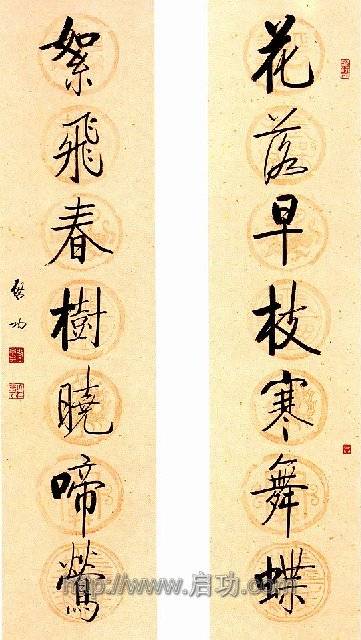 花落早枝寒舞蝶
絮飛春樹曉啼鶯
啓功
http://www.启功.net